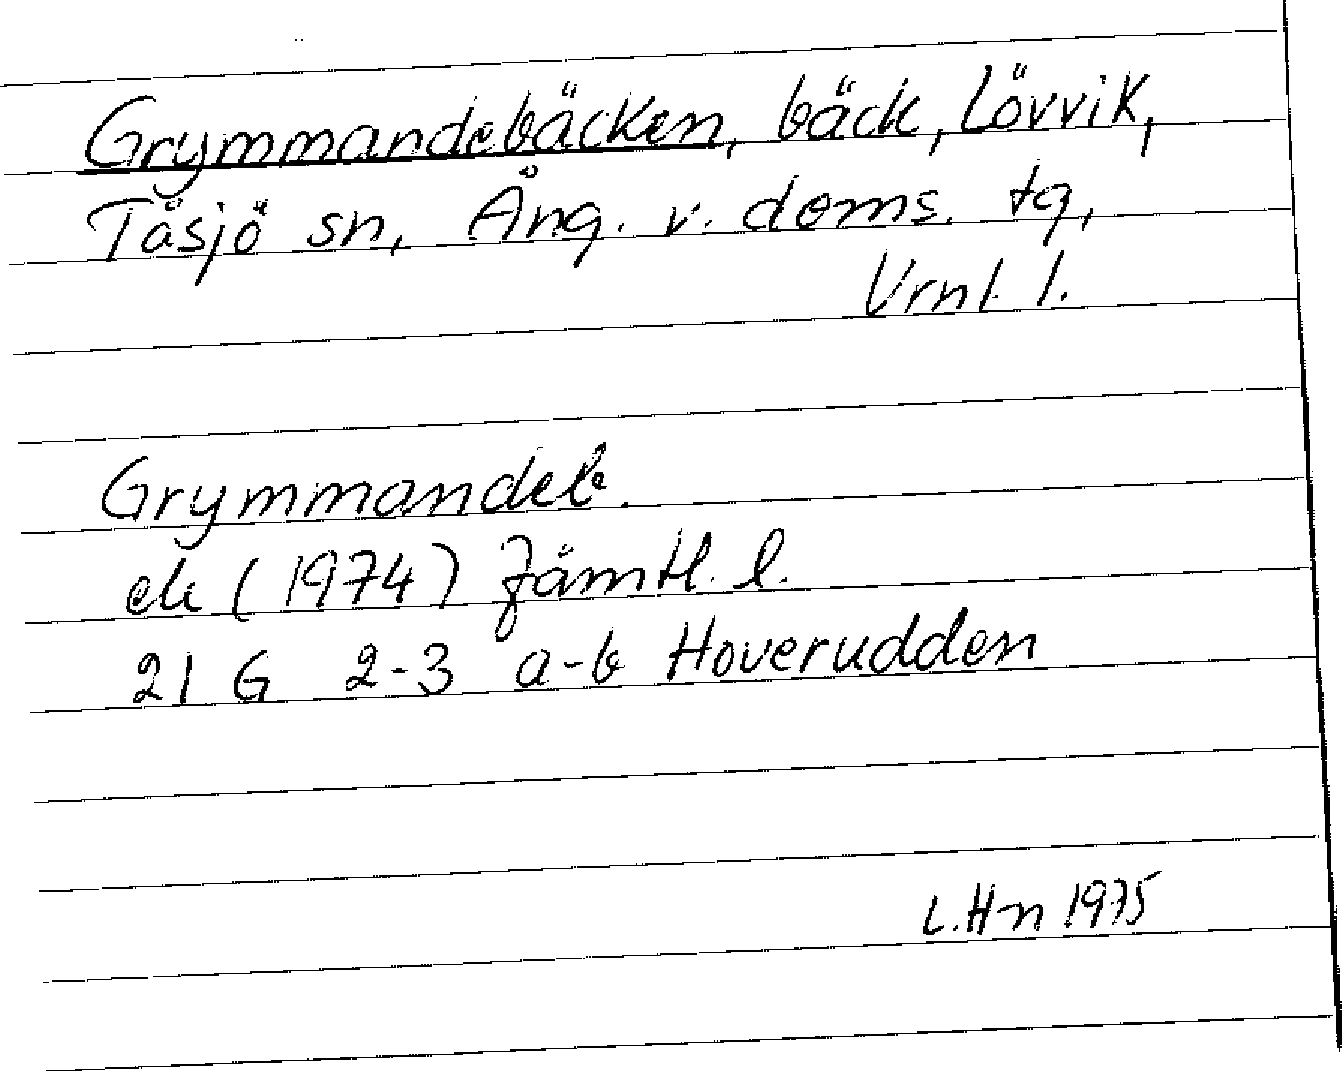 Grymmandebäcken, bäck, Lövvik,
Tåsjö sn, Ång. v. dems. tg,
Vrnl. l.
Grymmandeb.
ek (1974) Jämtl. l.
21 G 2-3 a-b Hoverudden
L. H-n 1975